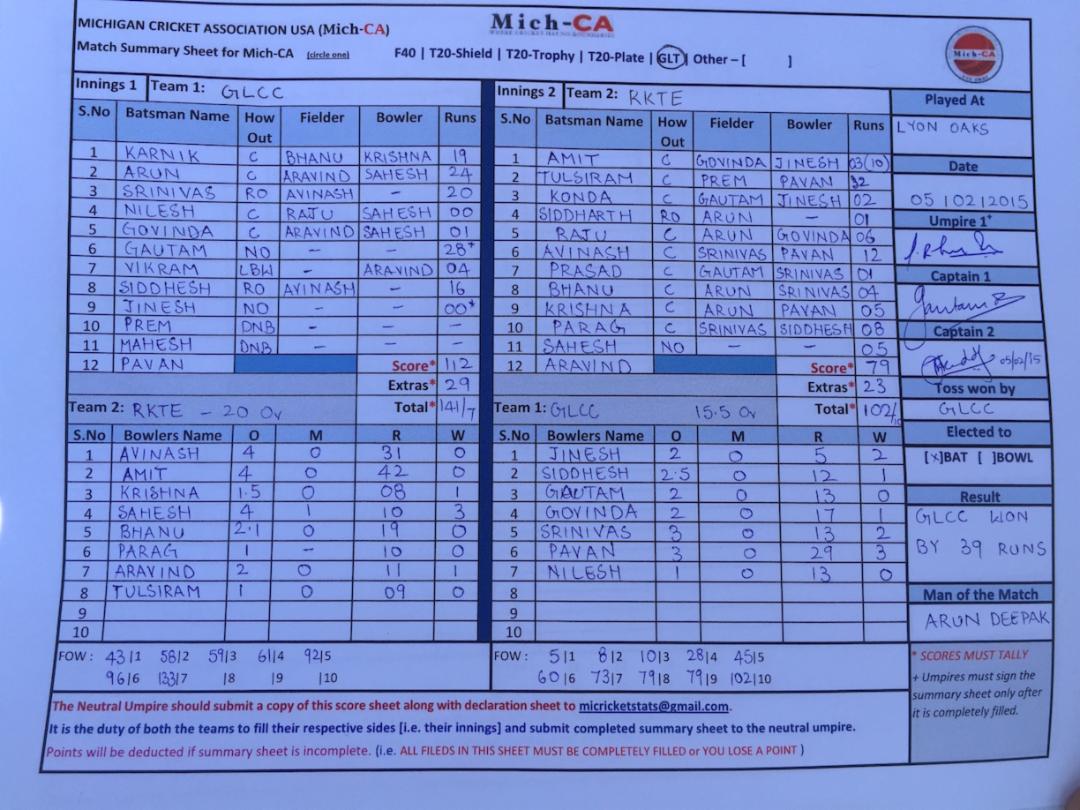 MICHIGAN CRICKET ASSOCIATION USA (Mich-CA)
Mich-CA
Match Summary Sheet for Mich-CA (circle one) F40 | T20-Shield | T20-Trophy | T20-Plate | GLT | Other – [ ]
Mich-CA
Innings 1 Team 1: GLCC
S.No Batsman Name How Out Fielder Bowler Runs
1 KARNIK C BHANU KRISHNA 19
2 ARUN C ARAVIND SAHESH 24
3 SRINIVAS RO AVINASH - 20
4 NILESH C RAJU SAHESH 00
5 GOVINDA C ARAVIND SAHESH 01
6 GAUTAM NO - - 28*
7 VIKRAM LBW - ARAVIND 04
8 SIDDHESH RO AVINASH - 16
9 JINESH NO - - 00*
10 PREM DNB - - -
11 MAHESH DNB - - -
12 PAVAN Score* 112
Extras* 29
Team 2: RKTE - 20 Ov Total* 141/7
S.No Bowlers Name O M R W
1 AVINASH 4 0 31 0
2 AMIT 4 0 42 0
3 KRISHNA 1.5 0 08 1
4 SAHESH 4 1 10 3
5 BHANU 2.1 0 19 0
6 PARAG 1 - 10 0
7 ARAVIND 2 0 11 1
8 TULSIRAM 1 0 09 0
9
10
FOW : 43/1 58/2 59/3 61/4 92/5
96/6 133/7 |8 |9 |10
Innings 2 Team 2: RKTE
S.No Batsman Name How Out Fielder Bowler Runs
1 AMIT C GOVINDA JINESH 03(10)
2 TULSIRAM C PREM PAVAN 32
3 KONDA C GAUTAM JINESH 02
4 SIDDHARTH RO ARUN - 01
5 RAJU C ARUN GOVINDA 06
6 AVINASH C SRINIVAS PAVAN 12
7 PRASAD C GAUTAM SRINIVAS 01
8 BHANU C ARUN SRINIVAS 04
9 KRISHNA C ARUN PAVAN 05
10 PARAG C SRINIVAS SIDDHESH 08
11 SAHESH NO - - 05
12 ARAVIND Score* 79
Extras* 23
Team 1: GLCC 15.5 Ov Total* 102/10
S.No Bowlers Name O M R W
1 JINESH 2 0 5 2
2 SIDDHESH 2.5 0 12 1
3 GAUTAM 2 0 13 0
4 GOVINDA 2 0 17 1
5 SRINIVAS 3 0 13 2
6 PAVAN 3 0 29 3
7 NILESH 1 0 13 0
8
9
10
FOW : 5/1 8/2 10/3 28/4 45/5
60/6 73/7 79/8 79/9 102/10
Played At
LYON OAKS
Date
05|02|2015
Umpire 1+
Captain 1
Captain 2
05/02/15
Toss won by
GLCC
Elected to
[x]BAT [ ]BOWL
Result
GLCC WON
BY 39 RUNS
Man of the Match
ARUN DEEPAK
* SCORES MUST TALLY
+ Umpires must sign the
summary sheet only after
it is completely filled.
The Neutral Umpire should submit a copy of this score sheet along with declaration sheet to micricketstats@gmail.com.
It is the duty of both the teams to fill their respective sides [i.e. their innings] and submit completed summary sheet to the neutral umpire.
Points will be deducted if summary sheet is incomplete. (i.e. ALL FILEDS IN THIS SHEET MUST BE COMPLETELY FILLED or YOU LOSE A POINT )